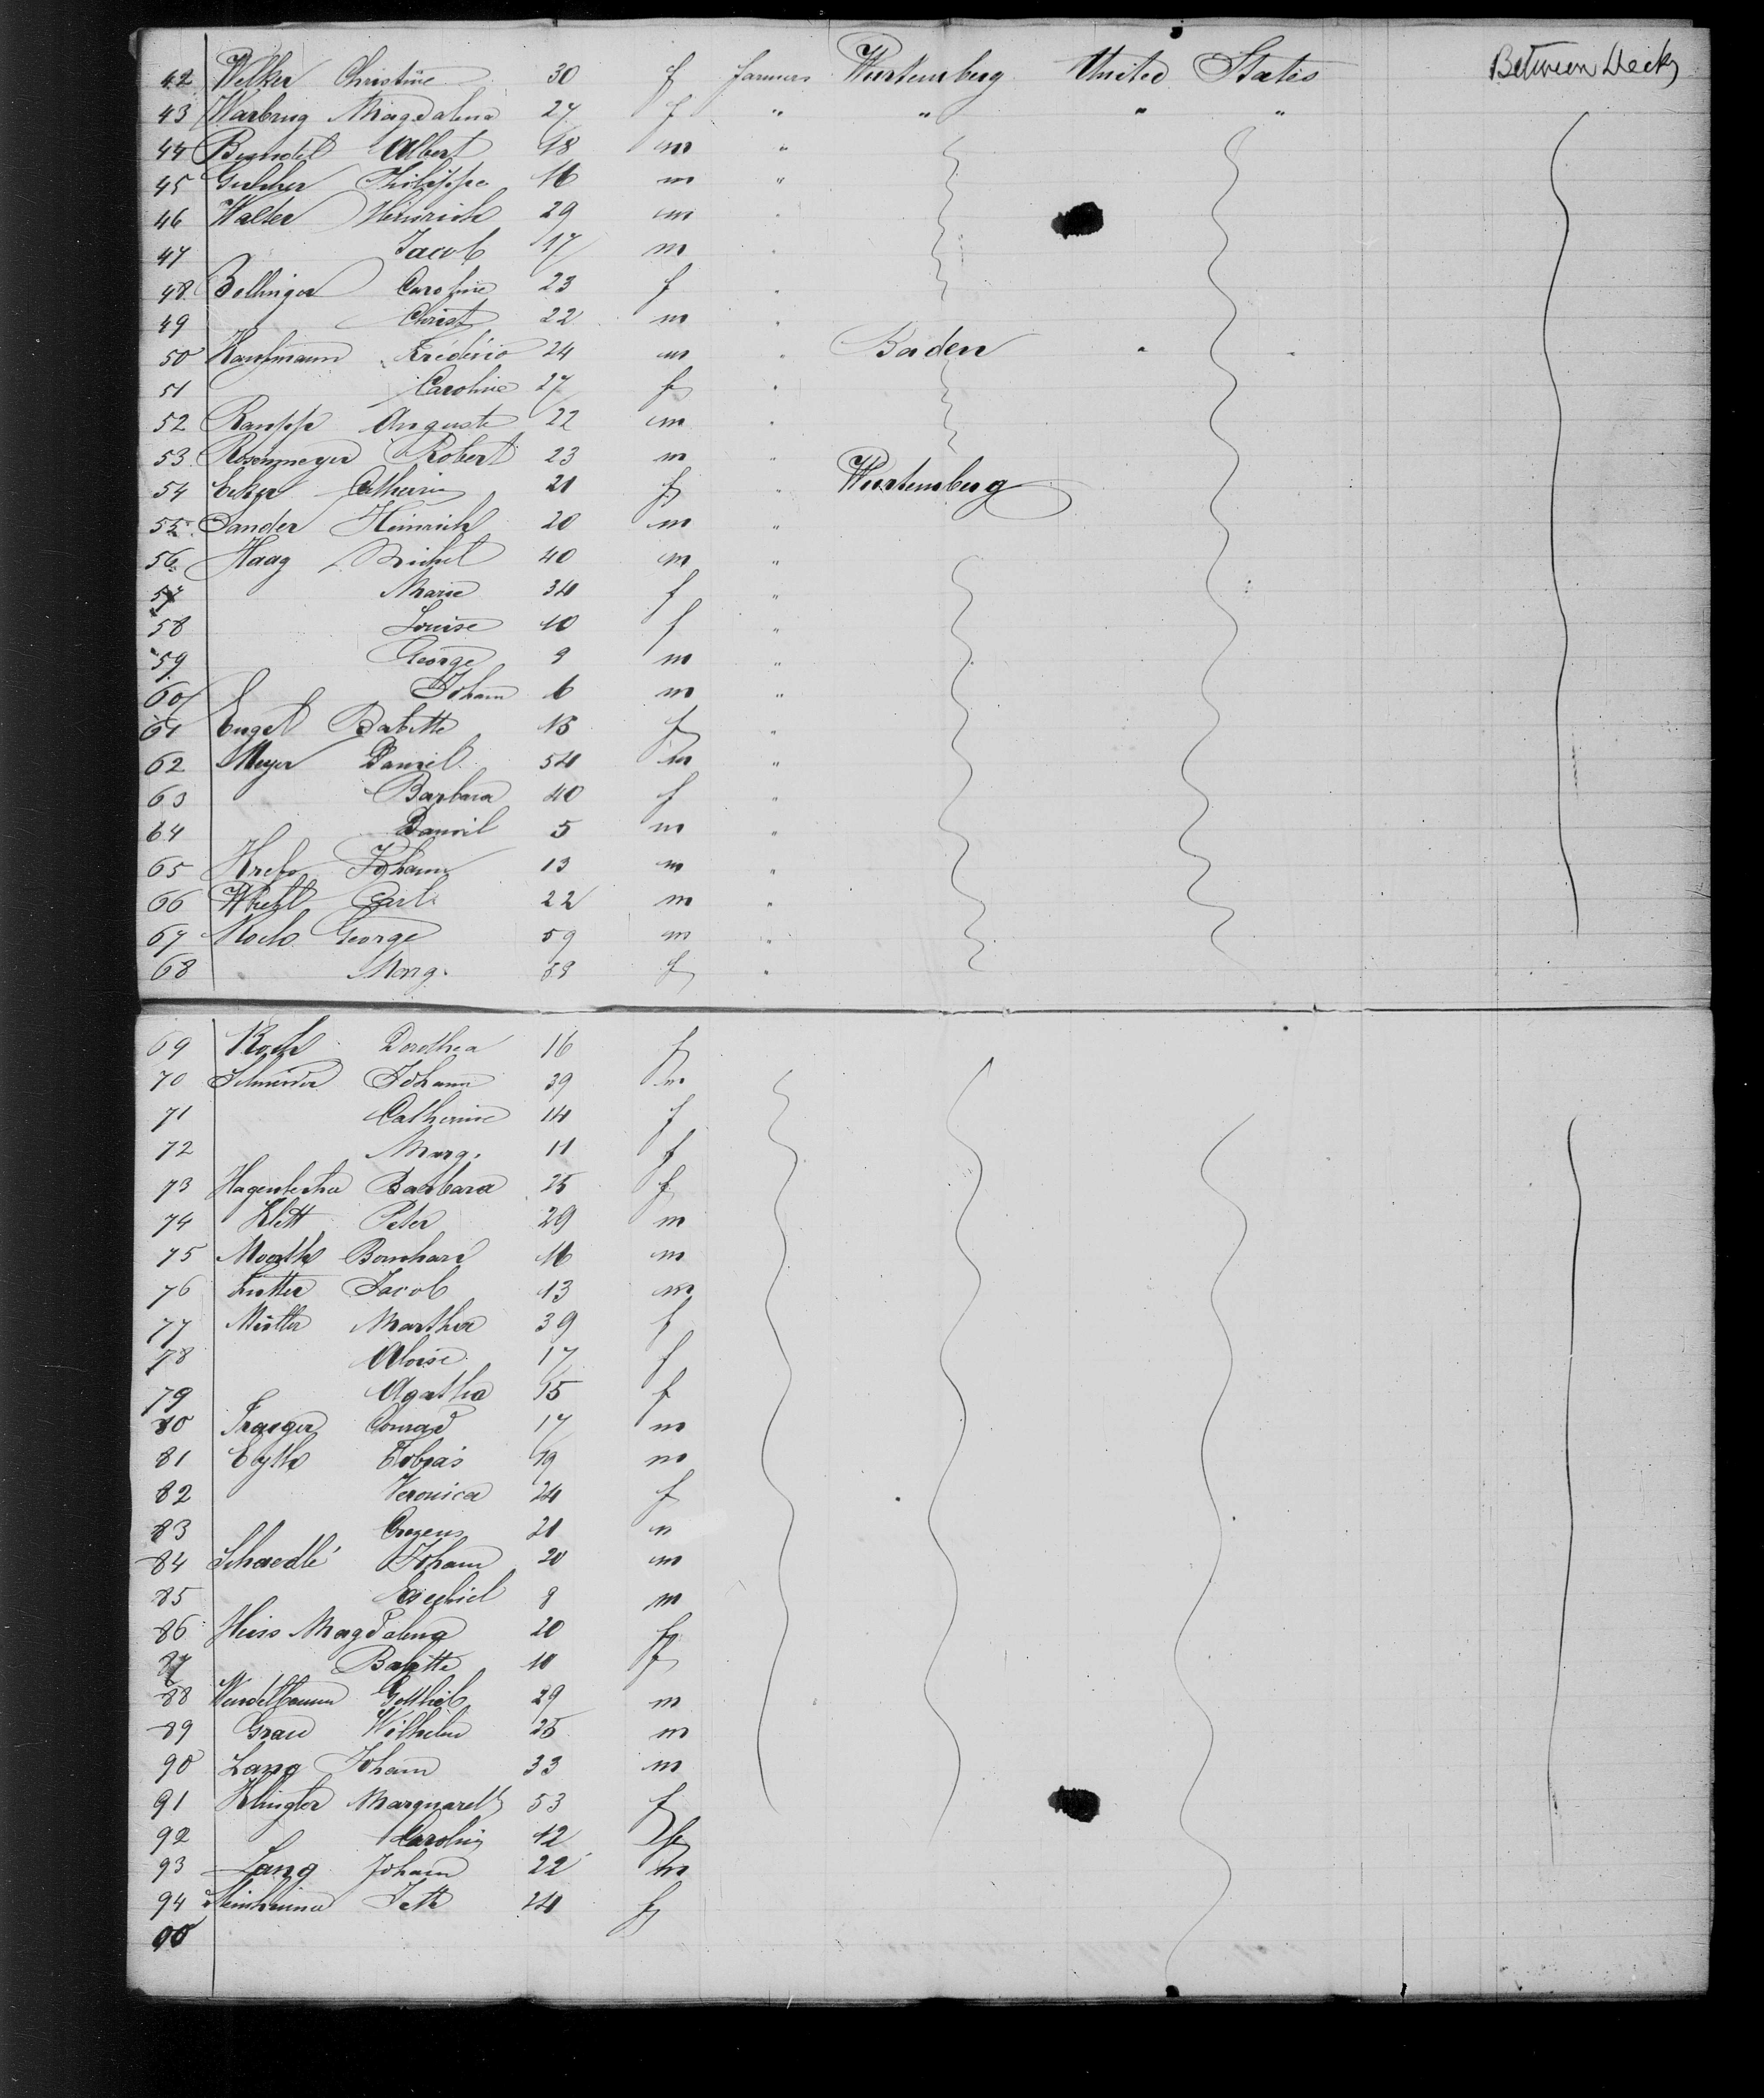 42 Welker Christine 30 f farmers Wurtemberg United States Between Decks
43 Warbrug Magdalena 27 f " " " "
44 Albert 18 m "
45 Philippe 16 m "
46 Walter Heinrich 29 m
47 Jacob 17 m
48 Bollinger Caroline 23 f
49 Christ 22 m
50 Kaufmann Frédéric 24 m Baden " "
51 Caroline 27 f
52 Rampp Auguste 22 m
53 Rosenmeyer Robert 23 m
54 Catherin 21 f Wurtemberg
55 Sander Heinrich 20 m "
56 Haag Michel 40 m "
57 Marie 34 f "
58 Louise 10 f "
59 George 9 m "
60 Joham 6 m "
61 Engel Babette 18 f "
62 Meyer Daniel 54 m "
63 Barbara 40 f "
64 Daniel 5 m "
65 Krebs Johann 13 m "
66 Carl 22 m "
67 Koch George 59 m "
68 Marg. f "
69 Koch Dorothea 16 f
70 Schneider Johann 39 m
71 Catherine 14 f
72 Marg. 11 f
73 Barbara 25 f
74 Klett Peter 29 m
75 Bernhard 16 m
76 Jacob 13 m
77 Müller Martha 39 f
78 Aloise 17 f
79 Agatha 15 f
80 Traeger Conrad 17 m
81 Eyth Tobias 19 m
82 Veronica 24 f
83 21 m
84 Schaedlé Joham 20 m
85 Ezechiel 8 m
86 Heiss Magdalena 20 f
87 Babette 10 f
88 Wendelbaum Gottlieb 29 m
89 Grau Wilhelm 25 m
90 Lang Joham 33 m
91 Klingler 53 f
92 Carolin 12 f
93 Lang Joham 22 m
94 24 f